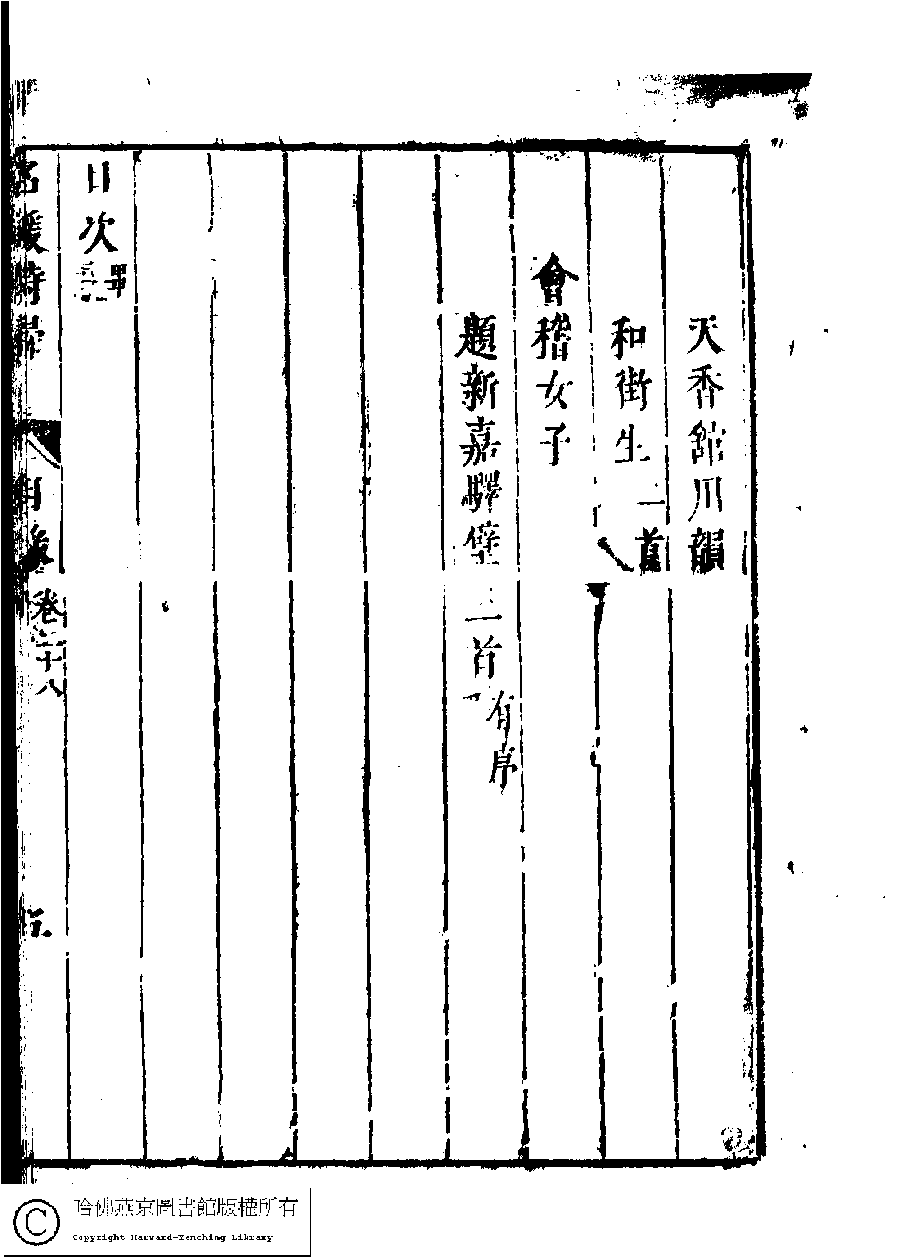 天香館用韻
和街生 二首
會稽女子
題新嘉驛壁 三首 有序
目次 畢
名媛詩歸 目次 卷二十八 五
哈佛燕京圖書館版權所有
Copyright Harvard-Yenching Library